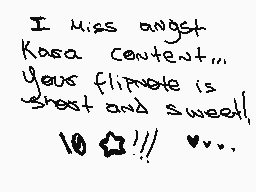 I miss angst
Kara content...
Your flipnote is
short and sweet!
10 ☆!!! ♥...